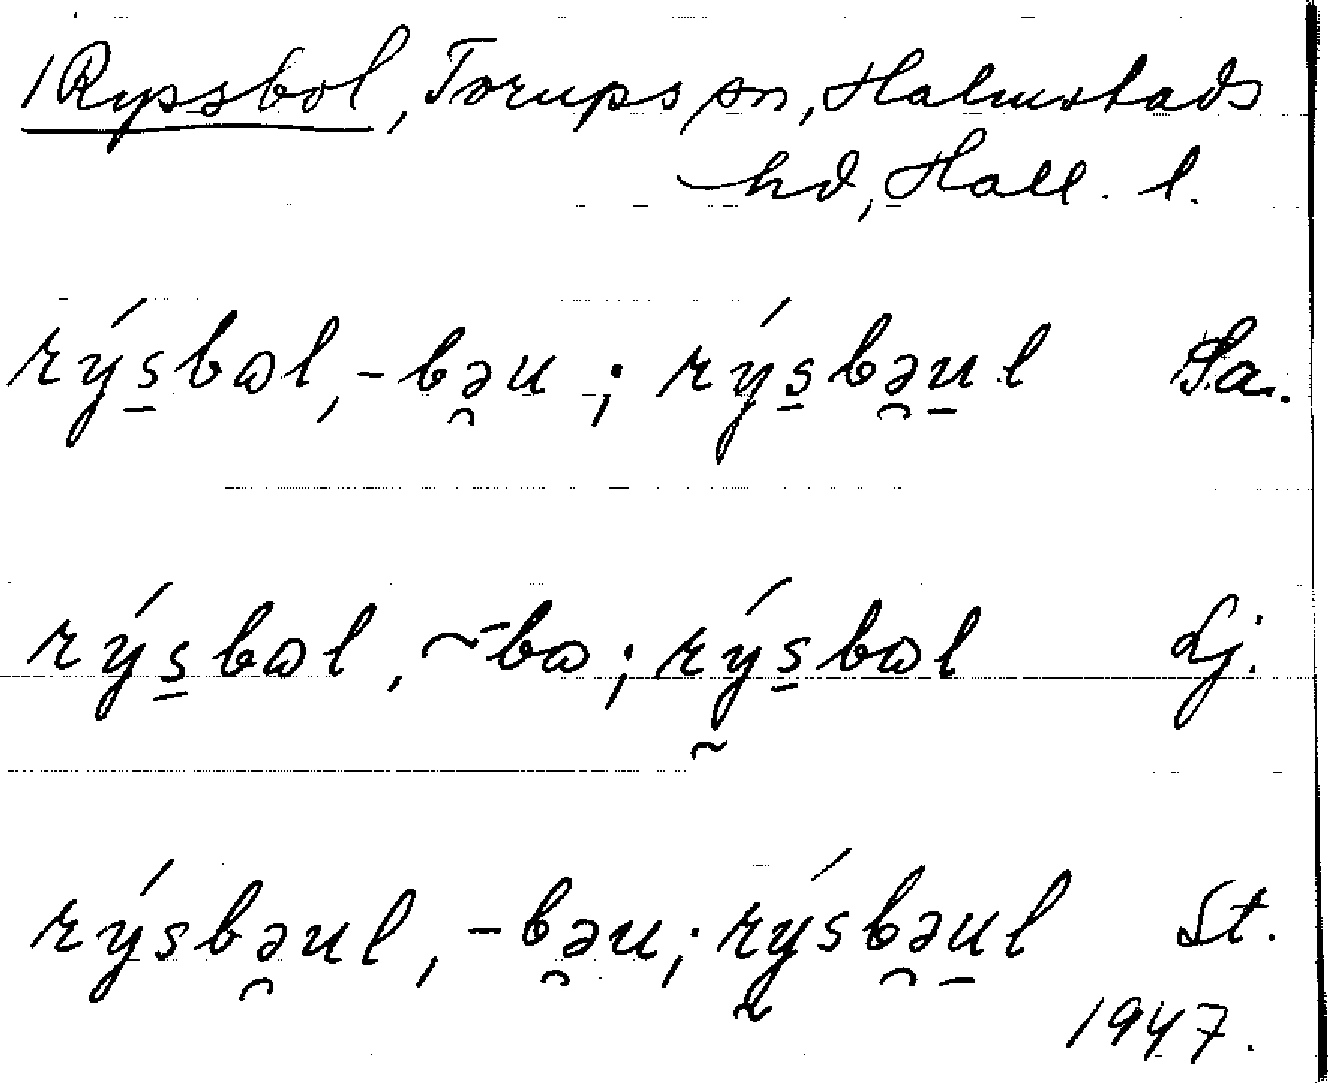 /Ryssbol, Torups sn, Halmstads
hd, Hall. l.
rýs̲bɷl, -bə̯u ; rýs̲bə̯u̲l Sa.
rýs̲bɷl, ~̄bɷ ; rý̰s̲bɷl Lj.
rýsbə̯ul, -bə̯u ; rý̰sbə̯u̲l St.
1947.